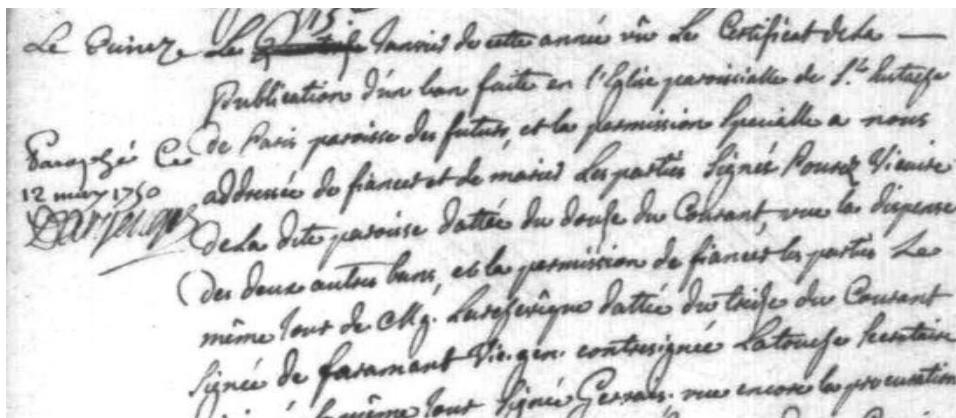 15e
Le quinze Le janvier de cette année vû Le Certificat de la —
publication d'un ban faite en l'Eglise paroissialle de St. Eustache
de Paris paroisse des futurs, et la permission specialle a nous
Paraphé Ce
addressée de fiancer et de marier Les parties signée Vicaire
12 may 1750
de la dite paroisse dattée du douse du Courant, vue la dispense
des deux autres bans, et la permission de fiancer les parties Le
même jour de Mg. L'archevêque dattée du treise du Courant
signée de faramant Vic. gen. contresignée Latouche secretaire
le même jour signée Gervais. vue encore la procuration